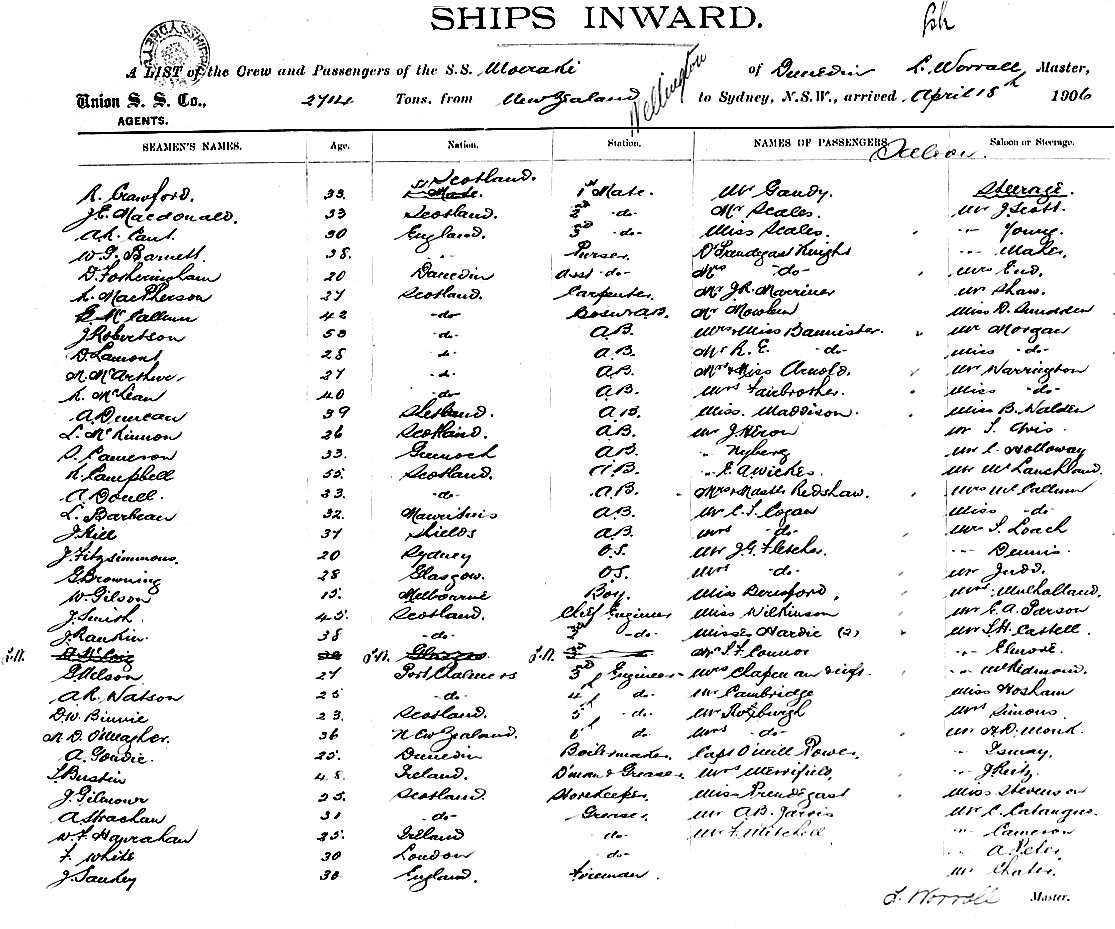 SHIPS INWARD.
A LIST of the Crew and Passengers of the S.S. Moeraki of Dunedin L. Worrall Master,
Union S. S. Co., 2714 Tons, from New Zealand Wellington to Sydney, N.S.W., arrived April 18th 1906
AGENTS.
SEAMEN'S NAMES. Age. Nation. Station. NAMES OF PASSENGERS. Saloon or Steerage.
Saloon.
R. Crawford. 33. Scotland. 1st Mate. Mr Gandy. Steerage.
J.E. Macdonald. 33 Scotland. 2d -do- Mr Scales. Mr J Scott.
30 England. 3d -do- Miss Scales. --- Young.
W.G. Barnett. 38. -- Purser. --- Maher.
D. Fotheringham 20 Dunedin Asst -do- Mrs -do- Mrs End.
MacPherson 27 Scotland. Carpenter. Mr J.R. Marriner Mr Shaw.
McCallum 42 -do- Bosun A.B. Mr Mowlem Miss D.
J. Robertson 53 -do- A.B. Mrs & Miss Bannister. Mr Morgan
D. Lamont 28 -do- A.B. Mr R.E. -do- Miss -do-
McArthur 27 -do- A.B. Mrs & Miss Arnold. Mr Warrington
McLean 40 -do- A.B. Mrs Fairbrother. Miss -do-
A. Duncan 39 Scotland. A.B. Miss. Maddison. Miss B. Walden
L. McKinnon 26 Scotland. A.B. Mr J Heron Mr
Cameron 33. Greenock A.B. " Nyberg Mr C. Holloway
Campbell 55. Scotland. A.B. " E. A Wickes. Mr
33. -do- A.B. Mrs & Master Redshaw. Mrs McCallum
L. Barbeau 32. Mauritius A.B. Mr C.S. Cogan Miss -do-
J Hill 37 Shields A.B. Mrs -do- Mr S. Loach
J. Fitzsimmons. 20 Sydney O.S. Mr J.G. Fletcher. --- Dennis.
G Browning 28 Glasgow. O.S. Mrs -do- Mr Judd.
W. Gilson 15. Melbourne Boy. Miss Mrs. Mulholland.
J. Smith. 45. Scotland. Chief Engineer Miss Wilkinson Mr E. A. Parson
J. Rankin. 38 -do- 2d -do- Misses Hardie (2) Mr Castell.
Mr Connor -- Elmore.
G Nelson. 27 Port Chalmers 3d Engineer
A.R. Watson. 25 -do- 4th do- Mr Cambridge Miss Hosham
D.W. Binnie 23. Scotland. 5th -do- Mr Roxburgh Mrs Simons.
36 New Zealand. 6th do- Mrs -do- Mr H.D. Monk.
A. Goudie. 25. Dunedin Boilermaker. Capt O'Neill Power. -- Ismay.
Bustin 48. Ireland. D'man & Greaser. Mrs Merrifield.
J. Gilmour 25. Scotland. Storekeeper. Miss Prendegast Miss Stevenson
A Strachan 31 -do- Greaser. Mr A.B. Jarvis Mr C.
W.F. Hanrahan 25. Ireland -do- Mr F. Mitchell -- Cameron
F. White 30 London -do-
J. Sankey 30 England. Fireman.
L. Worrall Master.